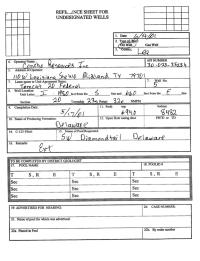 REFERENCE SHEET FOR
UNDESIGNATED WELLS
1. Date
2. Type of Well
Oil Well
Gas Well
4. Operator Name
API NUMBER
5. Address of Operator
110 W Louisiana Ste 410 Midland TX 79701
6. Lease name or Unit Agreement Name
Tomcat 20 Federal
7. Well No.
8. Well Location
Unit Letter I feet from the S line and 660 feet from the E line
Section 20 Township 23s Range 32e NMPM
9. Completion Date
5/7/01
11. Perfs top bottom
6940 8482
10. Name of Producing Formation
Delaware
12. Open Hole casing shoe PBTD or TD
14. C-123 Filed
15. Name of Pool Requested
SW Diamondtail Delaware
16. Remarks
Ext
TO BE COMPLETED BY DISTRICT GEOLOGIST
17. POOL NAME
18. POOL ID #
T S, R E T S, R E T S, R E
Sec Sec Sec
Sec Sec Sec
Sec Sec Sec
19. ADVERTISED FOR HEARING:
20. CASE NUMBER:
21. Name of pool for which was advertised
22a. Placed in Pool
22b. By order number